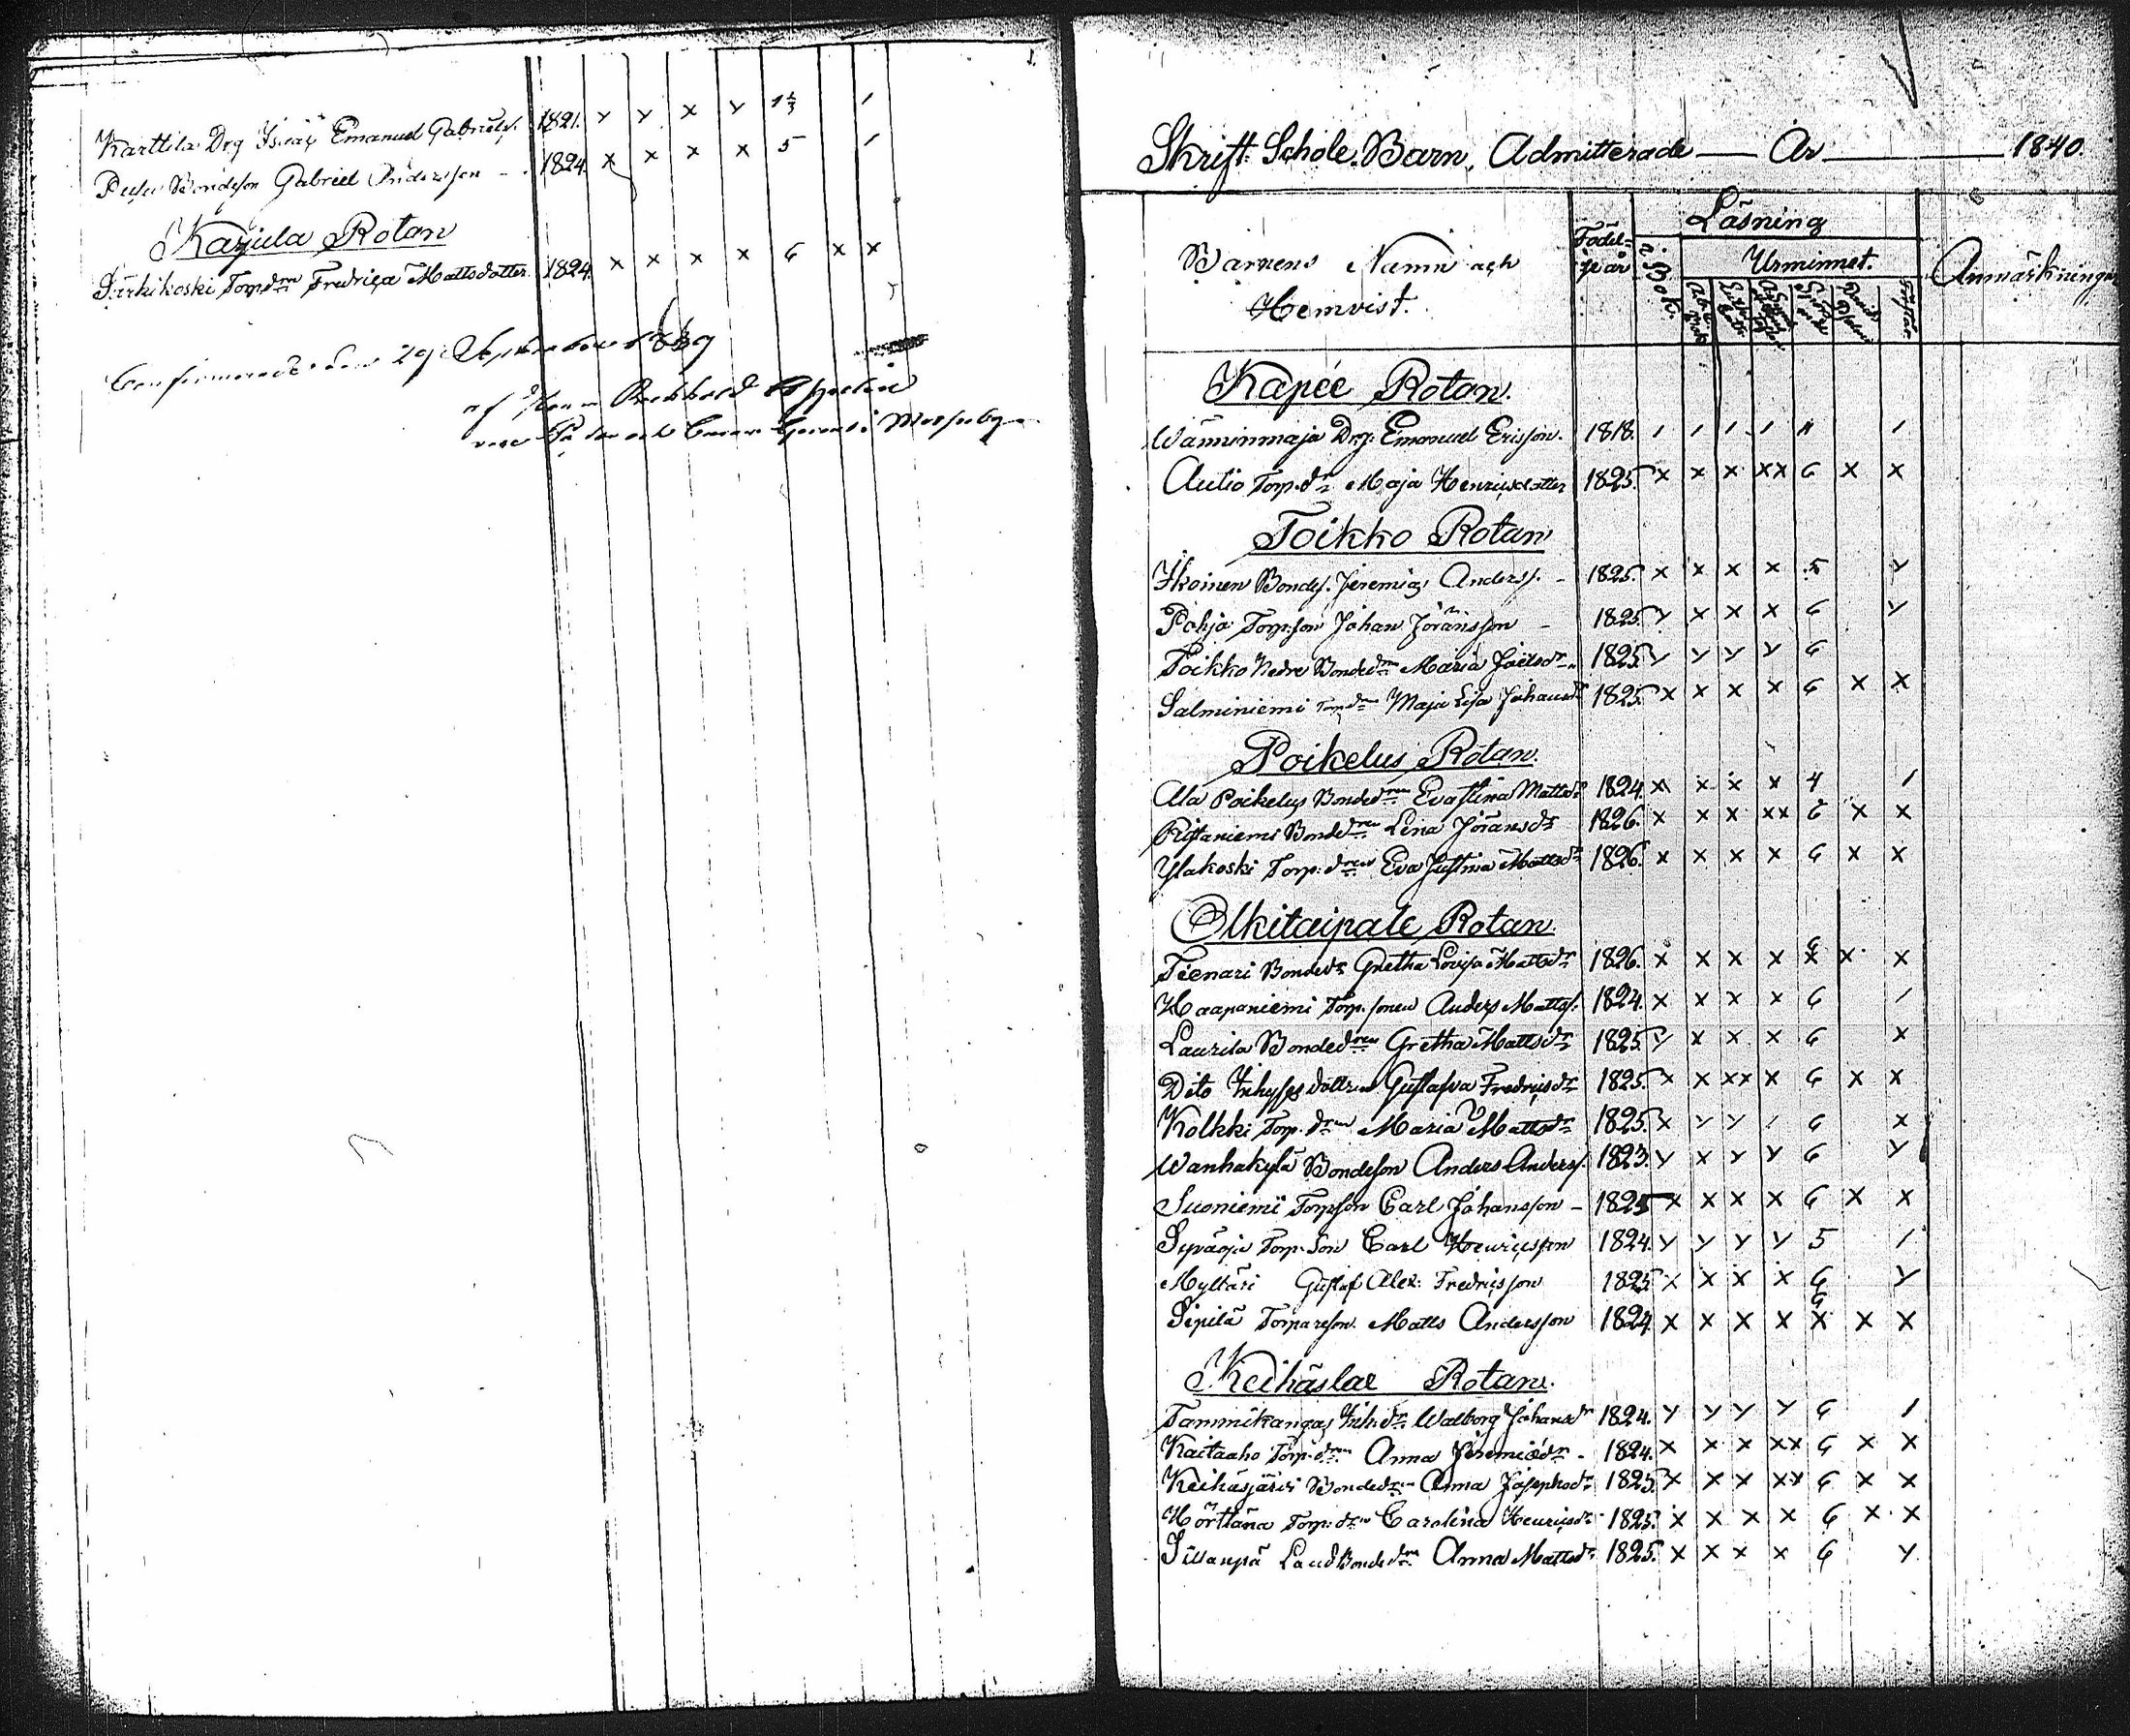 Karttila Drg Isaac Emanuel Gabriels. 1821. y y x y 1 1
Bondeson Gabriel Andersson - 1824. x x x x 5 1
Karjula Rotan
Torp.drn Fredrica Mattsdotter 1824. x x x x 6 x x
Confirmerade den 29 September
af Herr
Skrift-Schole-Barn, Admitterade — År — 1840.
Läsning
Barnens Namn och Hemvist. Födelse år i Bok. Urminnet. Anmärkningar
Kapee Rotan.
Wäninmaja Drg. Emanuel Ericsson. 1818. 1 1 1 1 4 1
Autio Torp.dr Maja Henricsdotter 1825. x x x xx 6 x x
Toikko Rotan
Ikoinen Bondes. Jeremias Anderss. - 1825. x x x x 5 y
Pohja Torp.son Johan Jöransson - 1825. y x x x 6 y
Toikko Nedre Bondedrn Maria Joelsdr 1825 y y y y 6
Salminiemi Torpdrn Maja Lisa Johansdr 1825. x x x x 6 x x
Poikelus Rotan.
Ala Poikelus Bondedrn Eva Stina Mattsdr 1824. x x x x 4 1
Ristaniemi Bondedrn Lena Jöransdr 1826. x x x xx 6 x x
Ylakoski Torp.drn Eva Justina Mattsdr 1826. x x x x 6 x x
Olkitaipale Rotan.
Tienari Bondedr Gretha Lovisa Mattsdr 1826. x x x x 6 x x x
Haapaniemi Torp.sonen Anders Mattss. 1824. x x x x 6 1
Laurila Bondedrn Gretha Mattsdr 1825. y x x x 6 x
Dito Inhyses dottren Gustafva Fredricsdr 1825. x x xx x 6 x x
Kolkki Torp.drn Maria Mattsdr 1825. x y y 1 6 x
Wanhakylä Bondeson Anders Anderss. 1823. y x y y 6 y
Suoniemi Torpson Carl Johansson - 1825 x x x x 6 x x
Syväoja Torp.Son Carl Henricsson 1824. y y y y 5 1
Mylläri Gustaf Alex: Fredricsson 1825 x x x x 6 y
Sipilä Torpareson Matts Andersson 1824 x x x x 6 x x x
Keihäslax Rotan.
Tammikangas Inh.dr Walborg Johansdr 1824. y y y y 6 1
Kaitaaho Torp.drn Anna Jeremiædr - 1824. x x x xx 6 x x
Keihäsjärvi Bondedrn Anna Josephsdr 1825. x x x xx 6 x x
Hörtläna Torp.drn Carolina Henricsdr 1825. x x x x 6 x x
Sillanpä Landbondedrn Anna Mattsdr 1825. x x x x 6 y